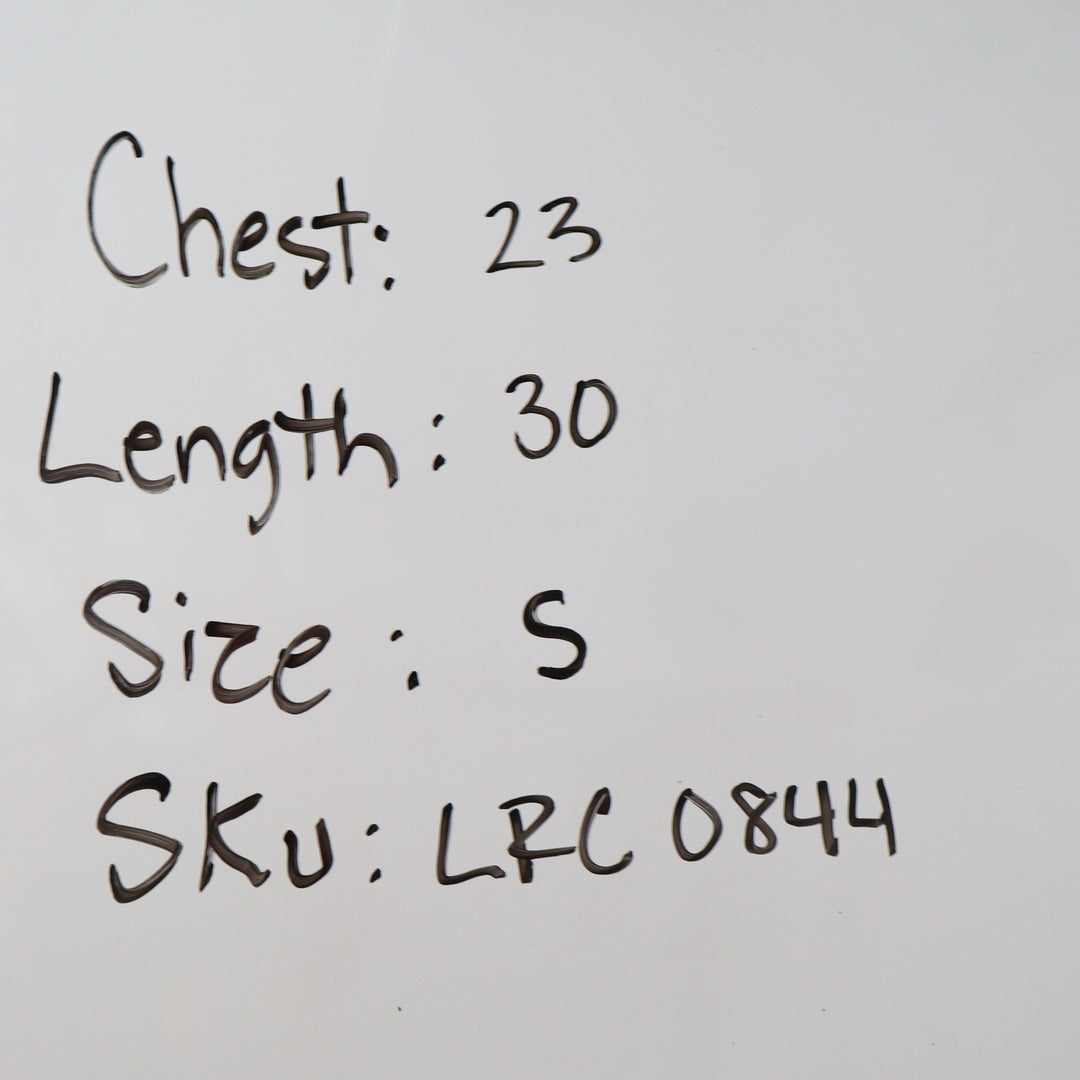 Chest: 23
Length: 30
Size: S
SKU: LRC 0844